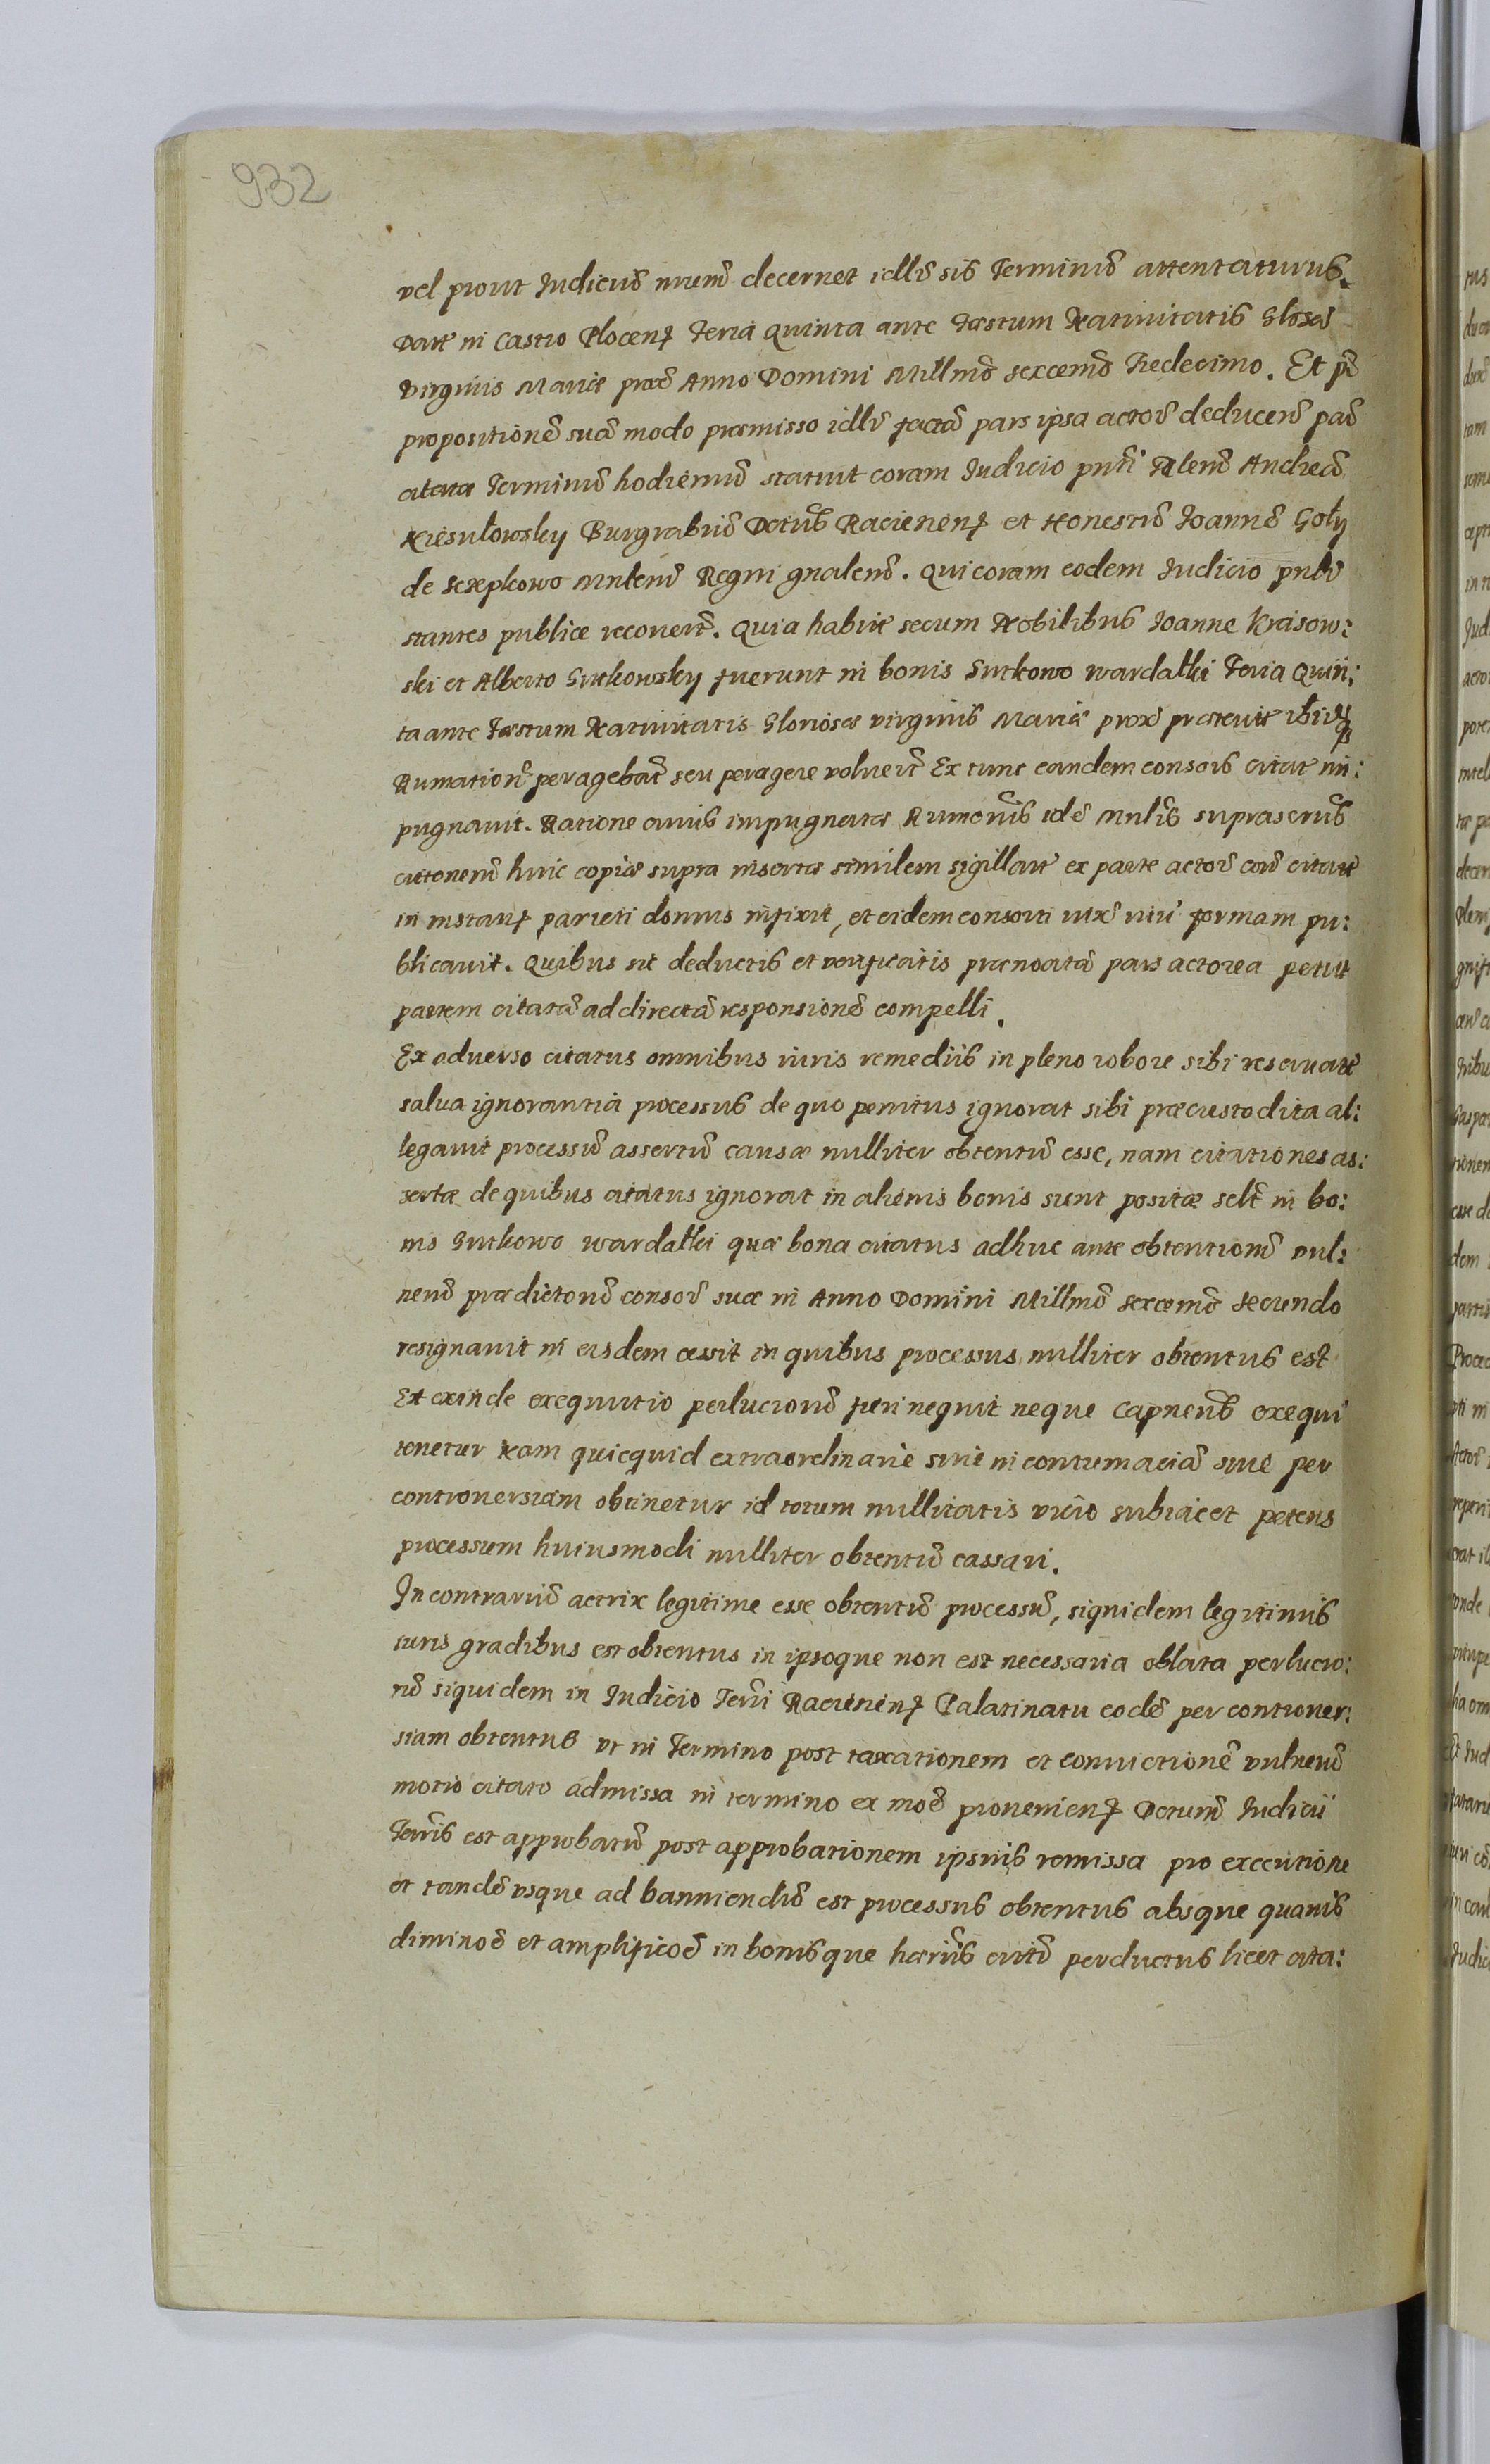 932
vel prout Iudiciũ nrum̃ decernet idlr̃ sis Terminũ attentaturus.
Dat̃ in Castro Plocen̄ Feria Quinta ante Festum Natiuitatis Gloẽ
Virginis Mariæ prox̃ Anno Domini Millmõ sexcemõ Tredecimo. Et pt̃
propositionẽ suã modo præmisso idlr̃ factã pars ipsa actoã deducen̄ paẽ
citatæ Terminũ hodiernũ statuit coram Iudicio pnti Nlem̃ Andreã
Niesułowsky Burgrabiũ Racienen̄ et Honestũ Ioannẽ Goły
de Szczpkowo Mnlem̃ Regni gnalem̃. Qui coram eodem Iudicio pntr̃
stantes publice recouert̃. Quia habit̃ secum Nobilibus Ioanne Krasow:
ski et Alberto Sutkowsky fuerunt in bonis Sutkowo wardałki Feria Quin:
ta ante Festum Natiuitatis Gloriosæ virginis Mariæ prox̃ præterit̃
Rumation̄ peragebat̃ seu peragere voluert̃ Ex tunc eandem consors citat̃ im:
pugnauit. Ratione cuius impugnatæ Rumonis idẽ Mnlis suprascrus
citonem̃ huic copiæ supra insertæ similem sigillat̃ ex parte actoẽ con̄ citat̃
in instan̄ parieti domus infixit, et eidem consorti iux̃ iuris formam pu:
blicauit. Quibus sic deductis et verificatis prænoatã pars actorea petiit
partem citatã ad directã responsionẽ compelli.
Ex aduerso citatus omnibus iuris remediis in pleno robore sibi reseruat̃
salua ignorantia processus de quo penitus ignorat sibi præcustodita al:
legauit processũ assertũ causæ nulliter obtentũ esse, nam citationes as:
sertæ de quibus citatus ignorat in alienis bonis sunt positæ sclt̃ in bo:
nis Sutkowo wardałki quæ bona citatus adhuc ante obtentionẽ vul:
nerũ prædictorũ consoẽ suæ in Anno Domini Millmõ sexcemõ secundo
resignauit in eisdem cessit in quibus processus nulliter obtentus est
Et exinde exequutio perlucrorũ fieri nequit neque Capneus̃ exequi
tenetur Nam quicquid extraordinarie siue in contumaciã siue per
controuersiam obtinetur id totum nullitatis vicio subiacet petens
processum huiusmodi nulliter obtentũ cassari.
In contrariũ actrix legitime esse obtentũ processũ, siquidem legitimis
iuris gradibus est obtentus in ipsoque non est necessaria oblata perlucro:
rũ siquidem in Iudicio Terri Racienen̄ Palatinatu eodẽ per controuer:
siam obtentus vt in Termino post taxationem et conuictionẽ vulnerũ
motio citato admissa in termino ex moẽ prouenien̄ Decretum̃ Iudicii
Terris est approbatũ post approbationem ipsius remissa pro executione
et tandẽ vsque ad banniendũ est processus obtentus absque quauis
diminoẽ et amplificoẽ in bonisque hæriis citti perductus licet cita: